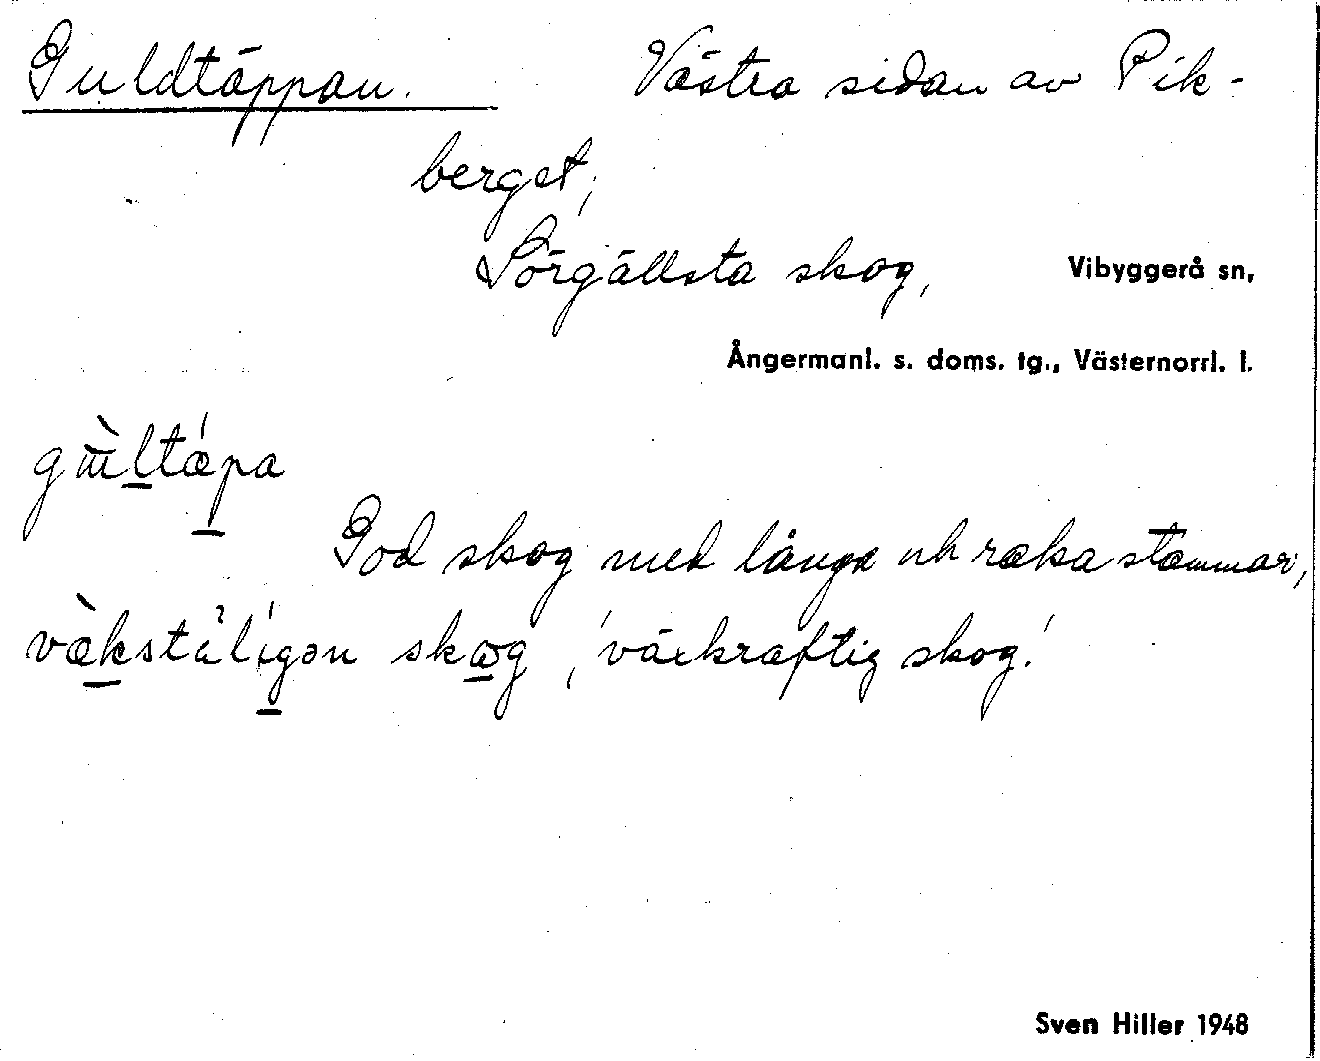 Guldtäppan. Västra sidan av Pik-
berget,
Sörgällsta skog, Vibyggerå sn,
Ångermanl. s. doms. tg., Västernorrl. l.
God skog med långa och raka stammar,
skog, 'växkraftig skog.'
Sven Hiller 1948